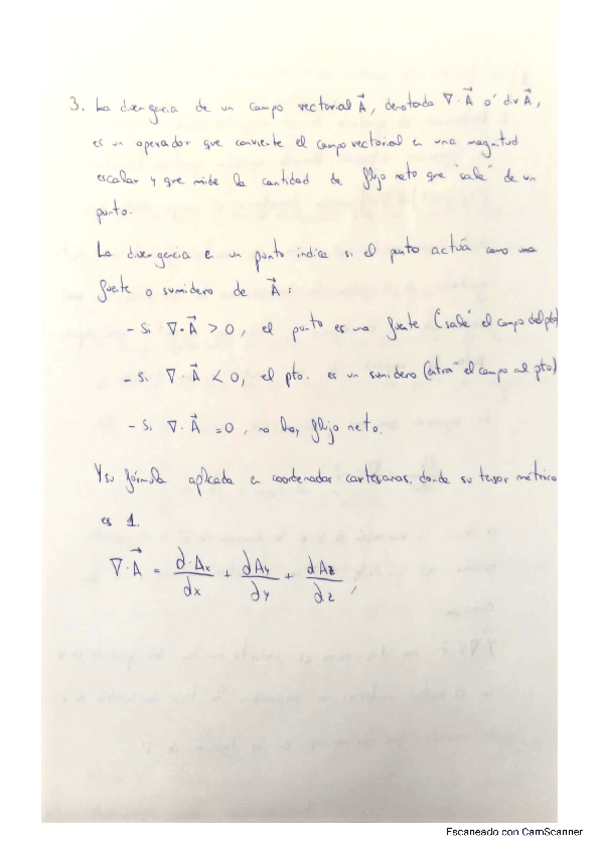 3. La divergencia de un campo vectorial A⃗, denotada ∇·A⃗ ó div A⃗,
es un operador que convierte el campo vectorial en una magnitud
escalar y que mide la cantidad de flujo neto que "sale" de un
punto.
La divergencia en un punto indica si el punto actúa como una
fuente o sumidero de A⃗:
- Si ∇·A⃗ > 0, el punto es una fuente ("sale" el campo del pto)
- Si ∇·A⃗ < 0, el pto. es un sumidero (entra" el campo al pto)
- Si ∇·A⃗ = 0, no hay flujo neto.
Y su fórmula aplicada en coordenadas cartesianas, donde su tensor métrico
es 1.
∇·A⃗ = d·Ax/dx + dAy/dy + dAz/dz
Escaneado con CamScanner